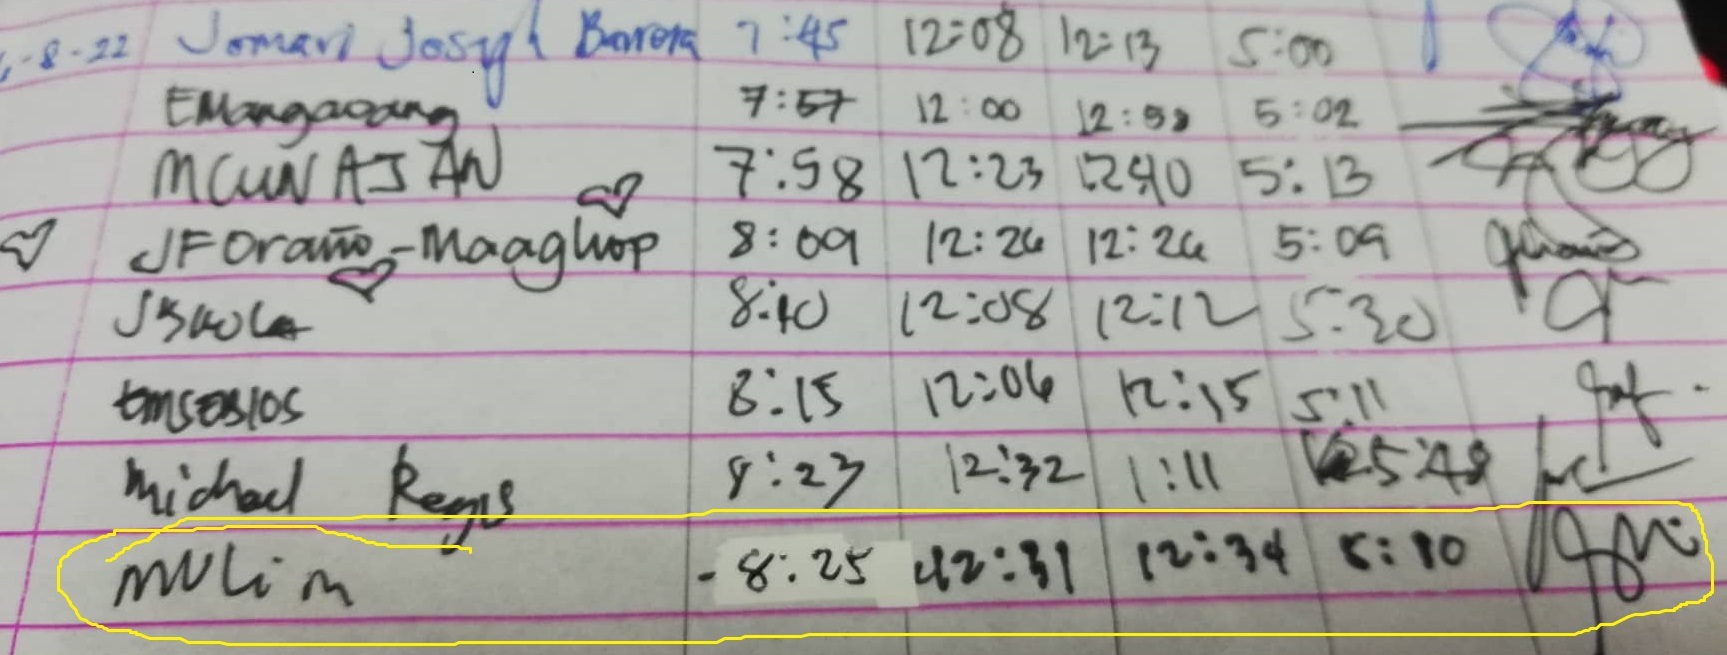 -8-22 Jomari Joseph Barora 7:45 12:08 12:13 5:00
EMangaoang 7:57 12:00 12:58 5:02
MCUNAJAN 7:58 12:23 12:40 5:13
JFOraño-Maaghop 8:09 12:26 12:26 5:09
8:10 12:08 12:12 5:30
8:15 12:06 12:15 5:11
Michael Regis 8:23 12:32 1:11 5:48
MVLim - 8:25 12:31 12:34 5:10